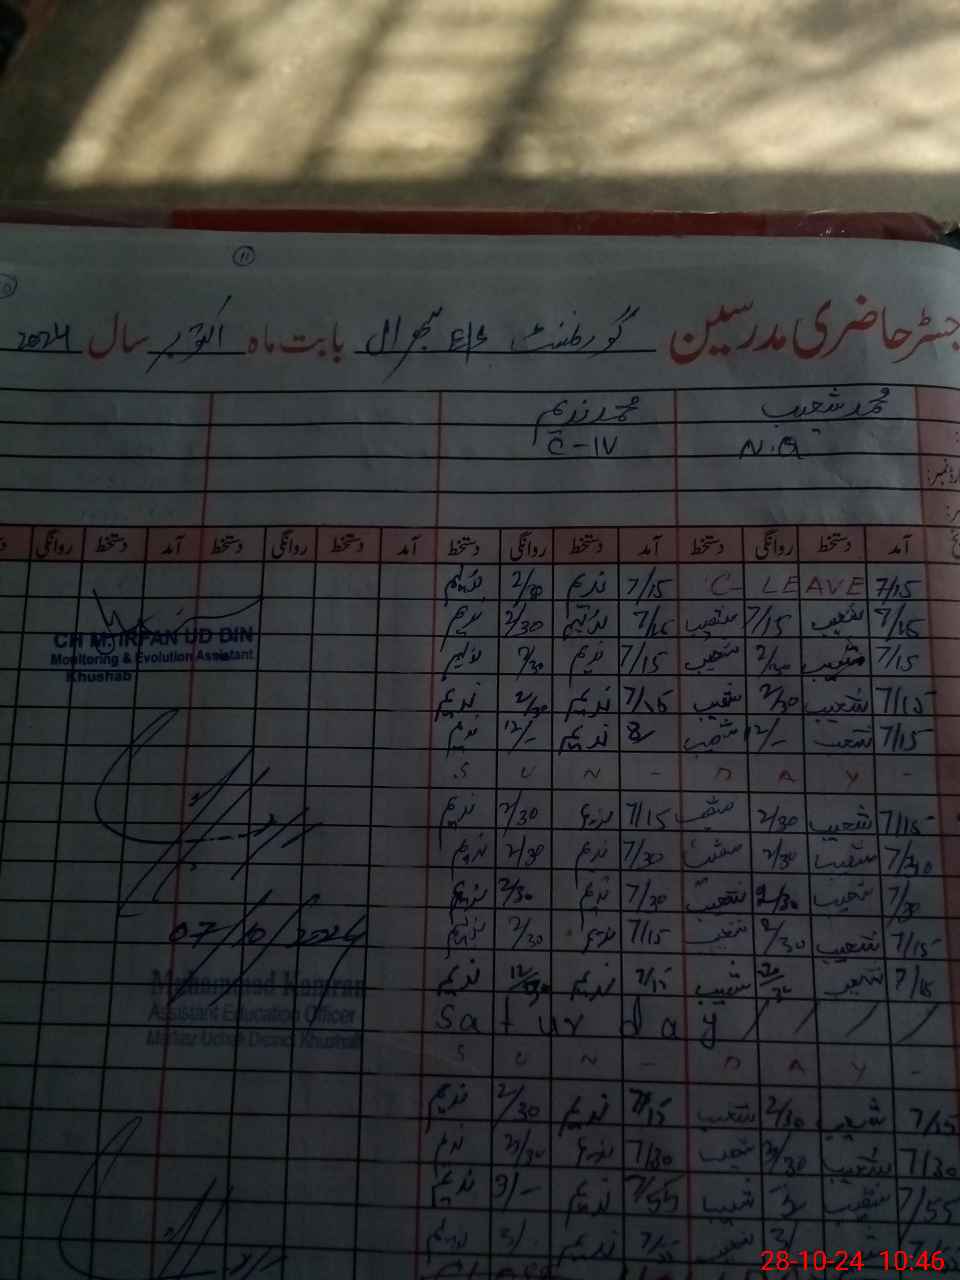 11
جسٹر حاضری مدرسین گورنمنٹ بابت ماہ اکتوبر سال 2024
محمد شعیب محمد ندیم
N.Q C-IV
آمد دستخط روانگی دستخط آمد دستخط روانگی دستخط آمد دستخط روانگی دستخط آمد دستخط روانگی
7/15 C- LEAVE 7/15 ندیم 2/30 ندیم
7/15 شعیب 7/15 شعیب 7/15 ندیم 2/30 ندیم
CH M. IRFAN UD DIN
Monitoring & Evolution Assistant
Khushab
7/15 شعیب 2/30 شعیب 7/15 ندیم 2/30 ندیم
7/15 شعیب 2/30 شعیب 7/15 ندیم 2/30 ندیم
7/15 شعیب 12/- شعیب 8/ ندیم 12/- ندیم
S U N - D A Y -
7/15 شعیب 2/30 شعیب 7/15 ندیم 2/30 ندیم
7/30 شعیب 2/30 شعیب 7/30 ندیم 2/30 ندیم
7/30 شعیب 2/30 شعیب 7/30 ندیم 2/30 ندیم
7/15 شعیب 2/30 شعیب 7/15 ندیم 2/30 ندیم
07/10/2024
7/15 شعیب شعیب 7/15 ندیم ندیم
Muhammad Kamran
Assistant Education Officer
Saturday / / / /
S U N - D A Y -
7/15 شعیب 2/30 شعیب 7/15 ندیم 2/30 ندیم
7/30 شعیب شعیب 7/30 ندیم ندیم
7/55 شعیب شعیب 7/55 ندیم 3/- ندیم
شعیب ندیم ندیم
28-10-24 10:46